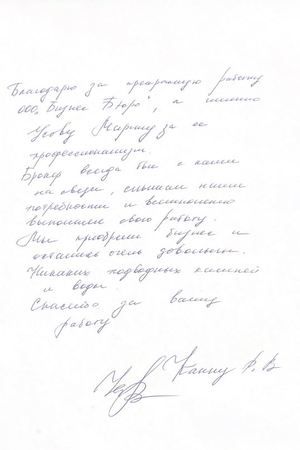 Благодарю за прекрасную работу
ООО "Бизнес Бюро", а именно
Усову Марину за ее
профессионализм.
Брокер всегда был с нами
на связи, слышал наши
потребности и
выполнял свою работу.
Мы приобрели бизнес и
остались очень довольны.
Никаких подводных камней
и воды.
Спасибо за вашу
работу